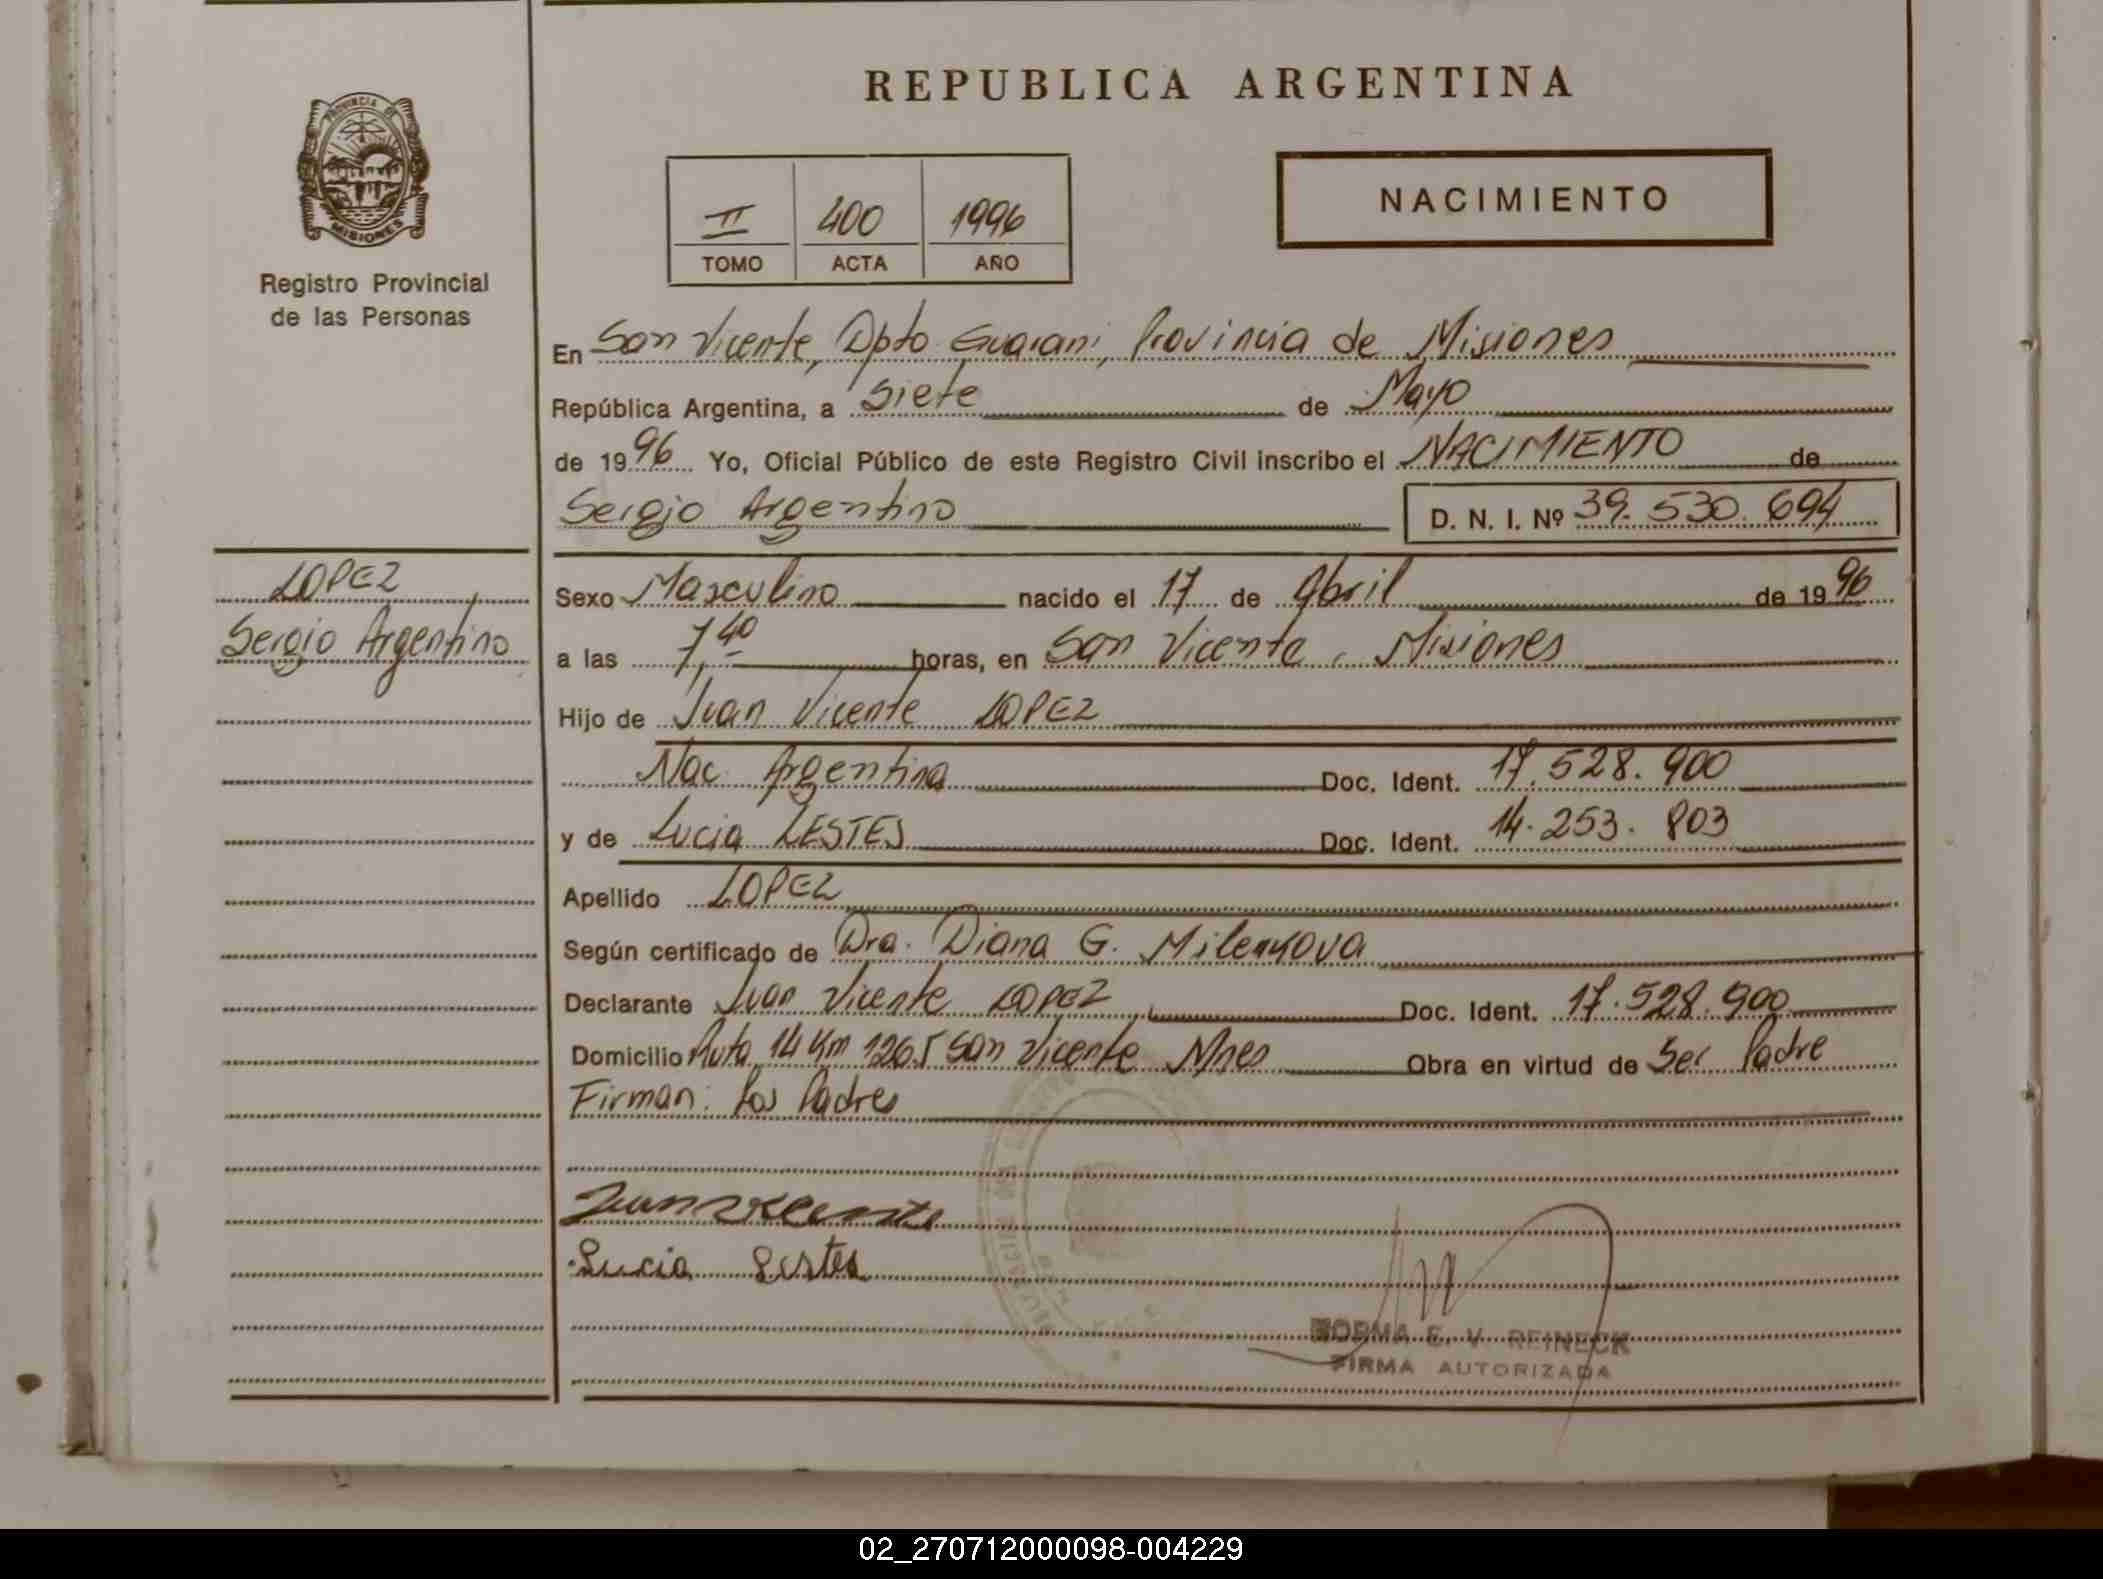 REPUBLICA ARGENTINA
PROVINCIA DE
MISIONES
Registro Provincial
de las Personas
II 400 1996
TOMO ACTA AÑO
NACIMIENTO
En San Vicente, Dpto Guarani, Provincia de Misiones
República Argentina, a Siete de Mayo
de 1996 Yo, Oficial Público de este Registro Civil inscribo el NACIMIENTO de
Sergio Argentino D. N. I. Nº 39.530.694
LOPEZ,
Sergio Argentino
Sexo Masculino nacido el 17 de Abril de 1996
a las 7,40 horas, en San Vicente, Misiones
Hijo de Juan Vicente LOPEZ
Nac. Argentina Doc. Ident. 17.528.900
y de Lucia LESTES Doc. Ident. 14.253.803
Apellido LOPEZ
Según certificado de Dra. Diana G.
Declarante Juan Vicente LOPEZ, Doc. Ident. 17.528.900
Domicilio Ruta 14 Km 1265 San Vicente Mnes Obra en virtud de Ser Padre
Firman: Los Padres
Juan Vicente
Lucia Lestes
NORMA E. V. REINECK
FIRMA AUTORIZADA
02_270712000098-004229